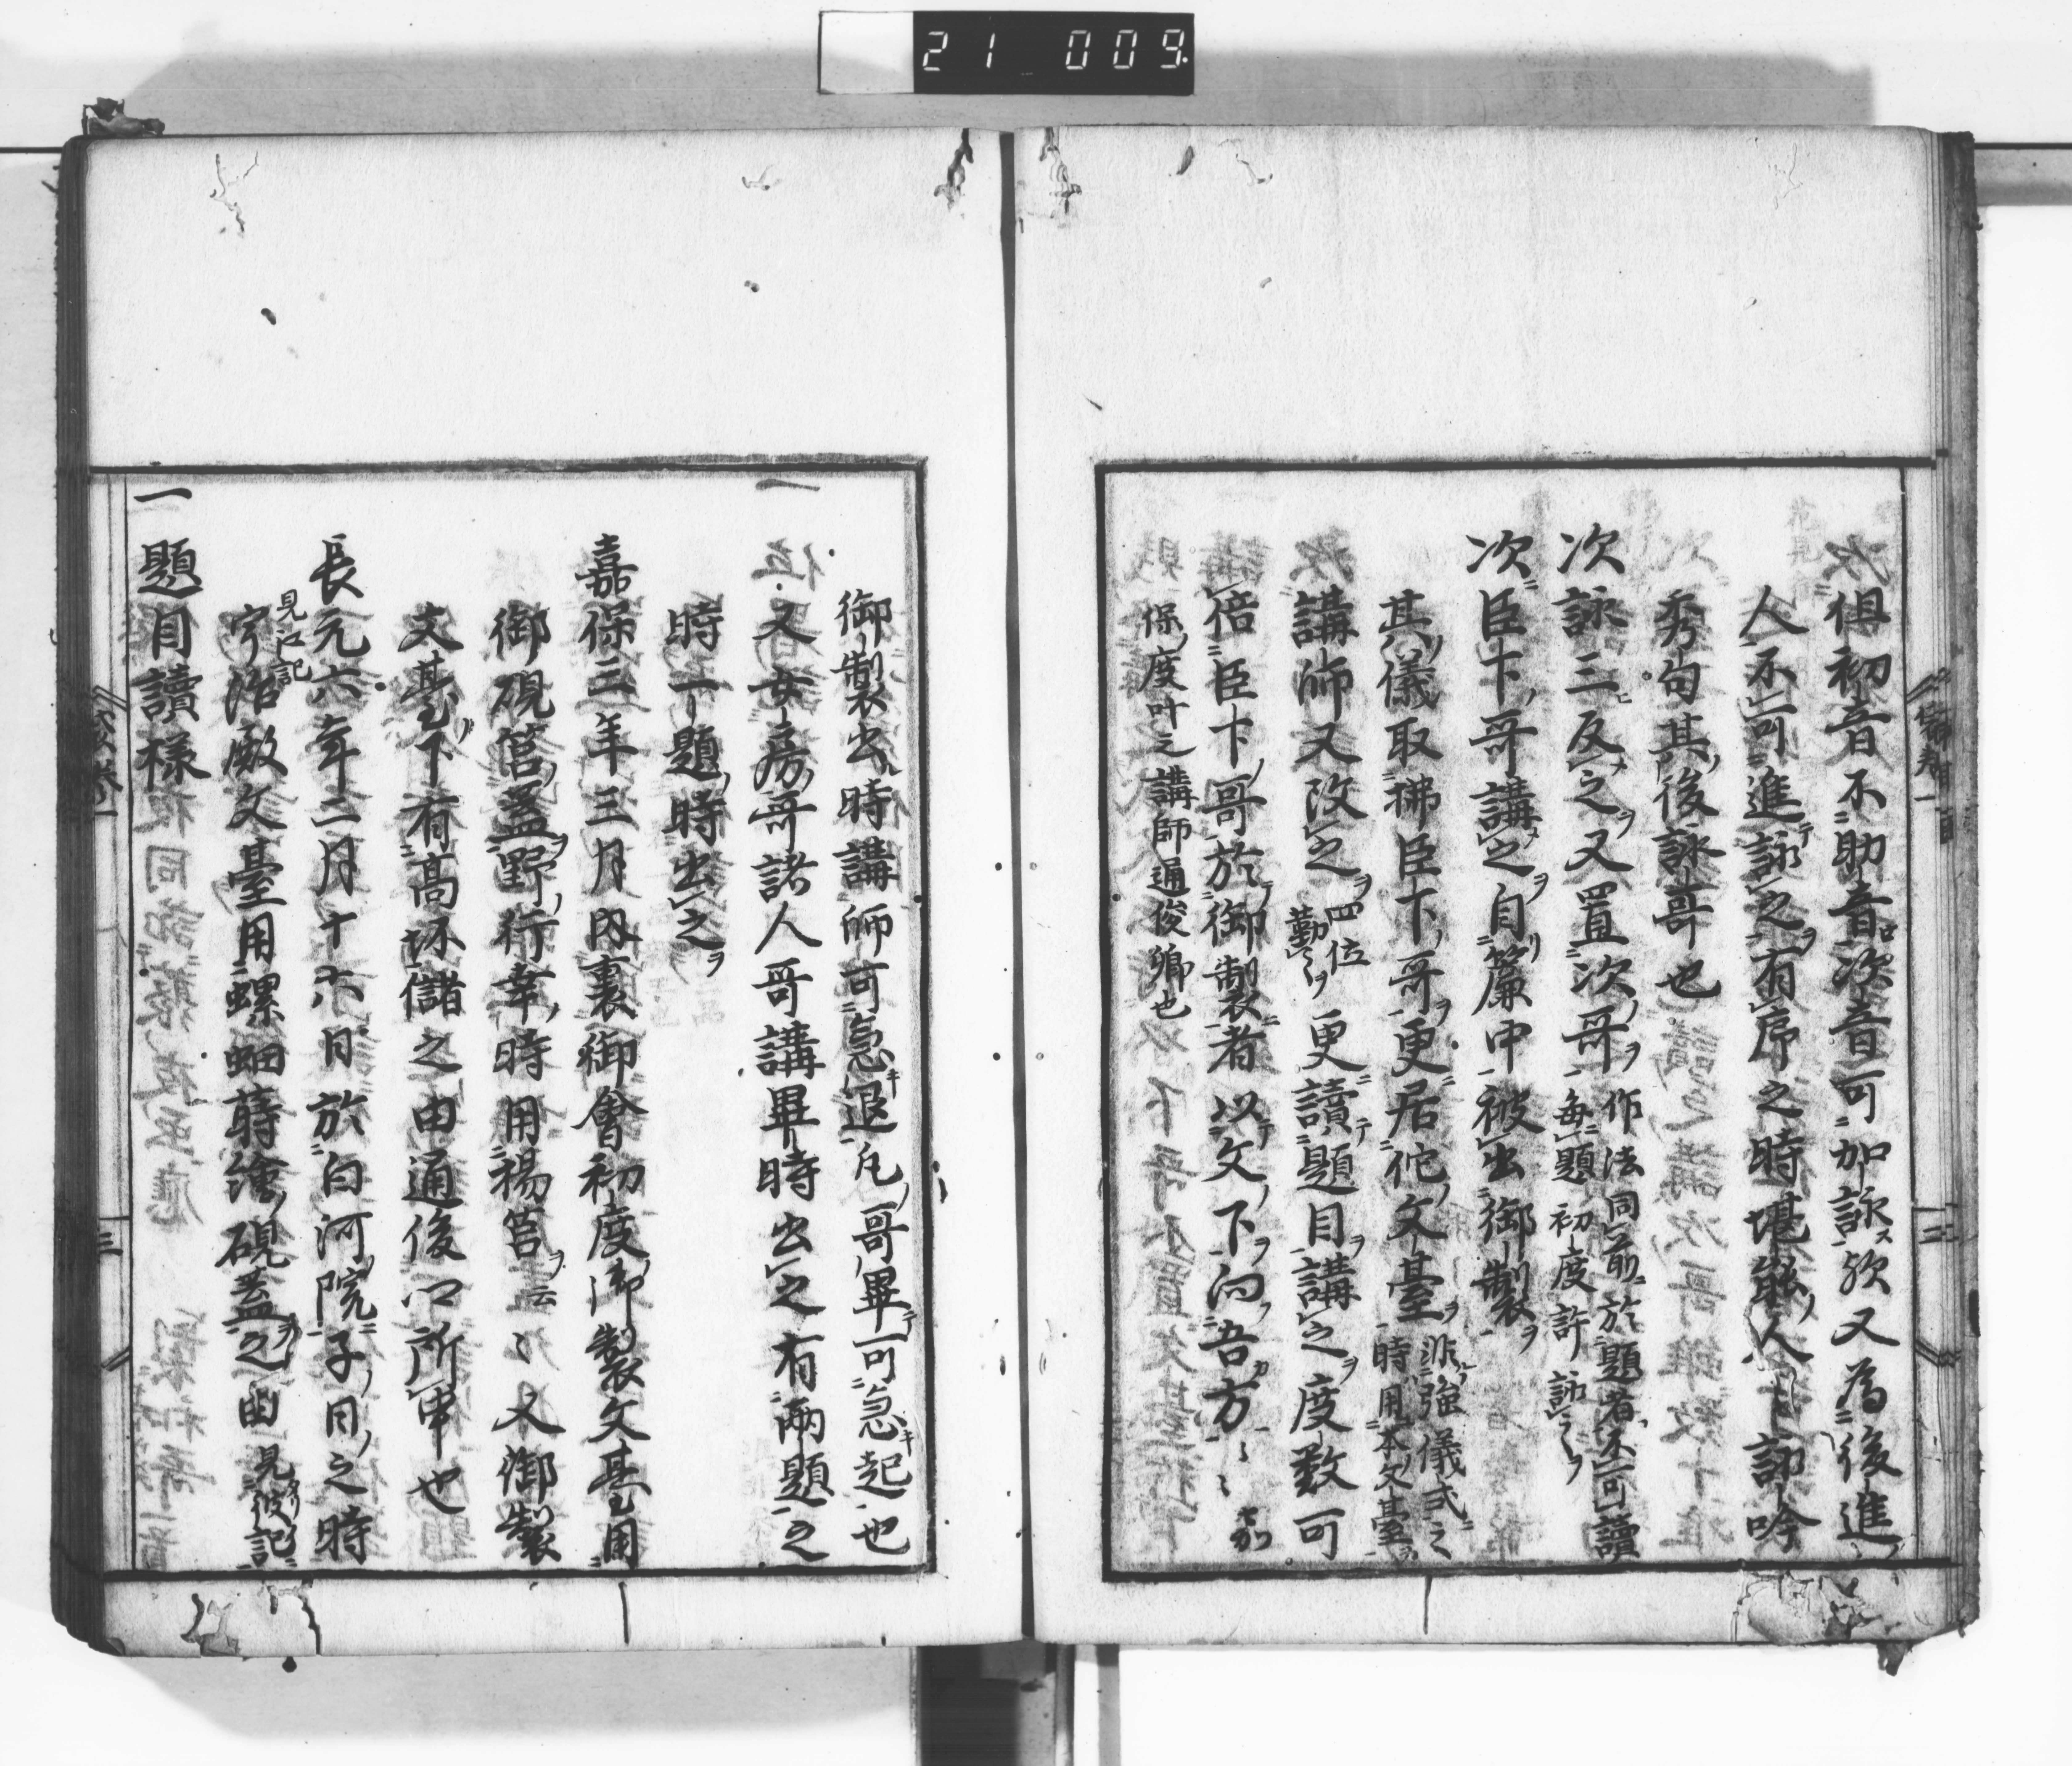 21 009
俱初音不助音次音可加詠欤又為後進
人不可進詠之有序之時堪能人計詠吟
秀句其後詠哥也
次詠三反之又置次哥作法同前於題者不可讀
毎題初度許詠之
次臣下哥講之自簾中被出御製
其儀取拂臣下哥更居佗文臺非強儀式之
時用本文臺
講師又改之四位
勤之更讀題目講之度数可
倍臣下哥於御製者以文下向吾方ミミ嘉
保度叶之講師通俊卿也
二
御製出時講師可急退凡哥畢可急起也
一又女房哥諸人哥講畢時出之有兩題之
時一題時出之
嘉保三年三月内裏御會初度御製文基用
御硯筥盖野行幸時用楊筥云々又御製
文基下有高坏儲之由通俊所申也
長元六年二月十六日於白河院子日之時
見江記
宇治殿文臺用螺鈿蒔繪硯蓋之由見彼記
一題目讀様
三